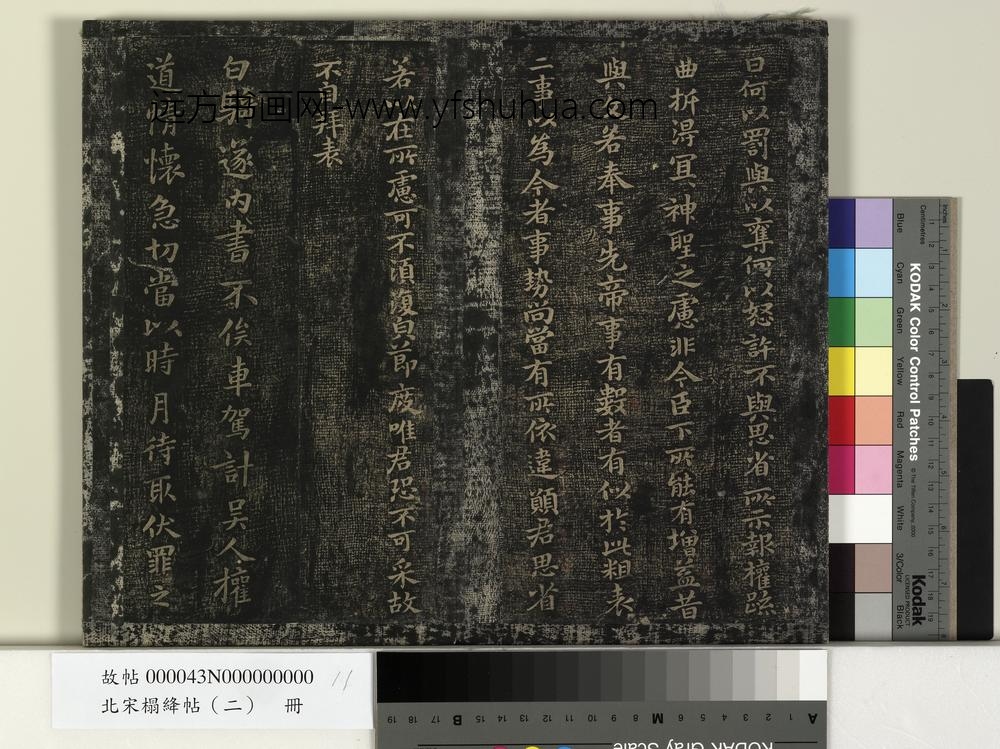 曰何以罰與以奪何以怒許不與思省所示報權疏
曲折得宜神聖之慮非今臣下所能有增益昔
與文若奉事先帝事有數者有似於此粗表
二事以為今者事勢尚當有所依違願君思省
若以在所慮可不須復貞節度唯君恐不可采故
不自拜表
白騎遂內書不俟車駕計吳人權
道情懷急切當以時月待取伏罪之
远方书画网-www.yfshuhua.com
故帖000043N000000000 11
北宋榻絳帖(二) 冊
KODAK Color Control Patches
© The Tiffen Company, 2000
Kodak
LICENSED PRODUCT
Blue
Cyan
Green
Yellow
Red
Magenta
White
3/Color
Black
Inches
Centimetres
KODAK Gray Scale
A 1 2 3 4 5 6 M 8 9 10 11 12 13 14 15 B 17 18 19